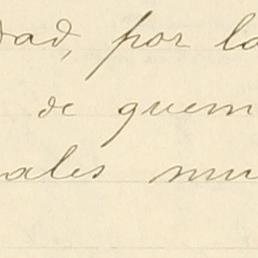 dad, por la
de quem
ales mu